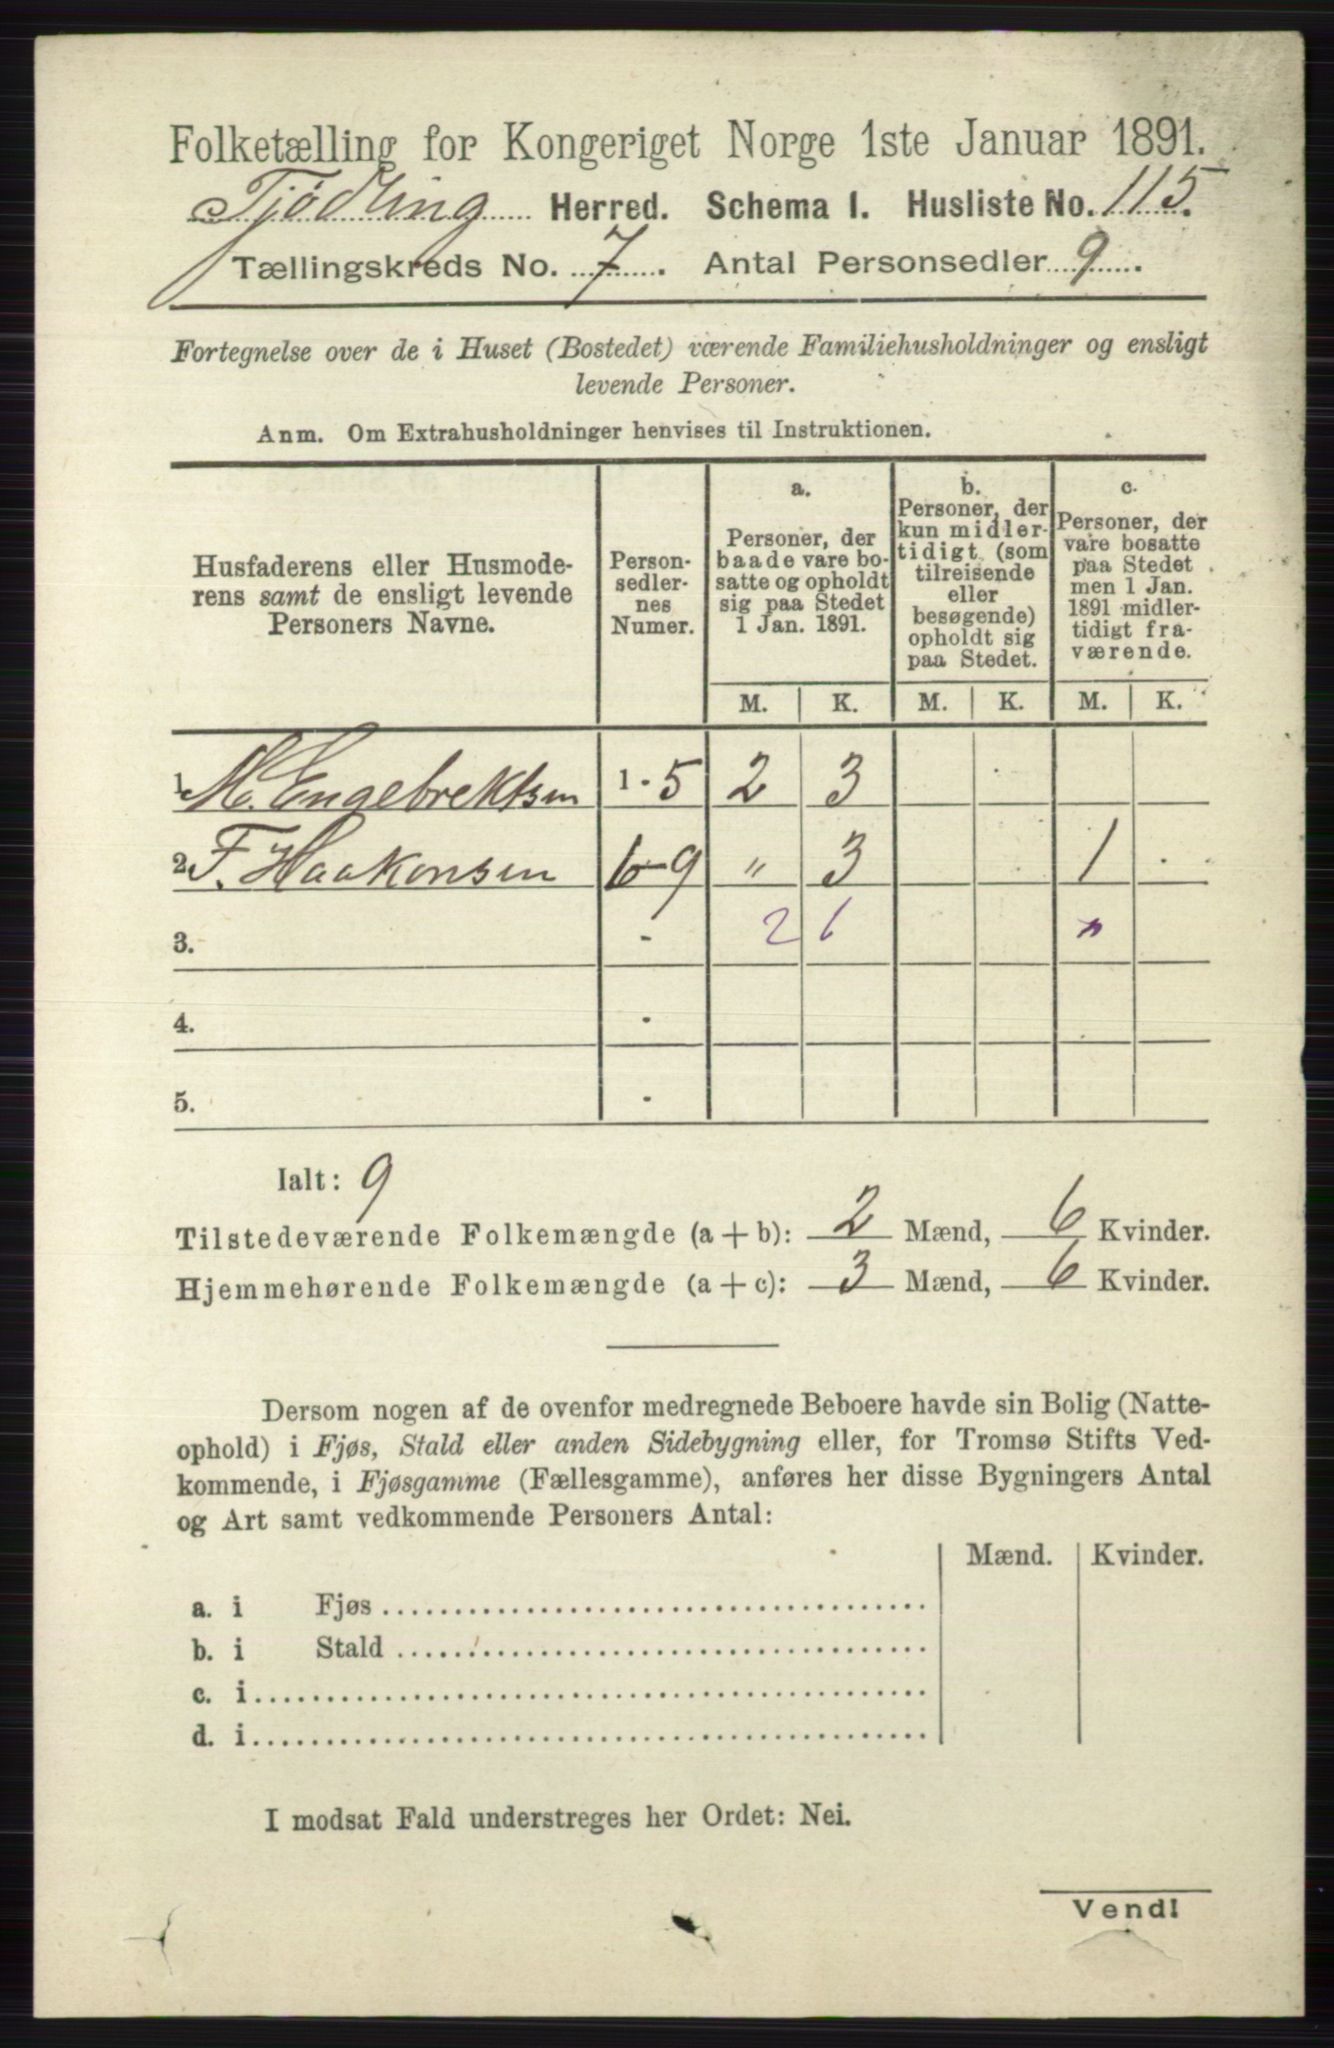 Folketælling for Kongeriget Norge 1ste Januar 1891.
Tjødling Herred. Schema I. Husliste No. 115.
Tællingskreds No. 7. Antal Personsedler 9.
Fortegnelse over de i Huset (Bostedet) værende Familiehusholdninger og ensligt
levende Personer.
Anm. Om Extrahusholdninger henvises til Instruktionen.
Husfaderens eller Husmode-
rens samt de ensligt levende
Personers Navne.
Person-
sedler-
nes
Numer.
a.
Personer, der
baade vare bo-
satte og opholdt
sig paa Stedet
1 Jan. 1891.
b.
Personer, der
kun midler-
tidigt (som
tilreisende
eller
besøgende)
opholdt sig
paa Stedet.
c.
Personer, der
vare bosatte
paa Stedet
men 1 Jan.
1891 midler-
tidigt fra-
værende.
M. K. M. K. M. K.
1. M. Engebrektsen 1 - 5 2 3
2. F. Haakonsen 6-9 " 3 1
3. - 2 6
4. -
5. -
Ialt: 9
Tilstedeværende Folkemængde (a + b): 2 Mænd, 6 Kvinder.
Hjemmehørende Folkemængde (a + c): 3 Mænd, 6 Kvinder.
Dersom nogen af de ovenfor medregnede Beboere havde sin Bolig (Natte-
ophold) i Fjøs, Stald eller anden Sidebygning eller, for Tromsø Stifts Ved-
kommende, i Fjøsgamme (Fællesgamme), anføres her disse Bygningers Antal
og Art samt vedkommende Personers Antal:
Mænd. Kvinder.
a. i Fjøs
b. i Stald
c. i
d. i
I modsat Fald understreges her Ordet: Nei.
Vend!